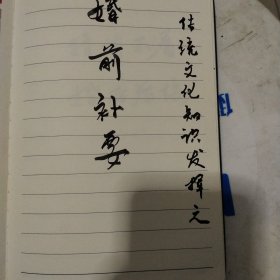 传统文化知识发挥元
婚前补要